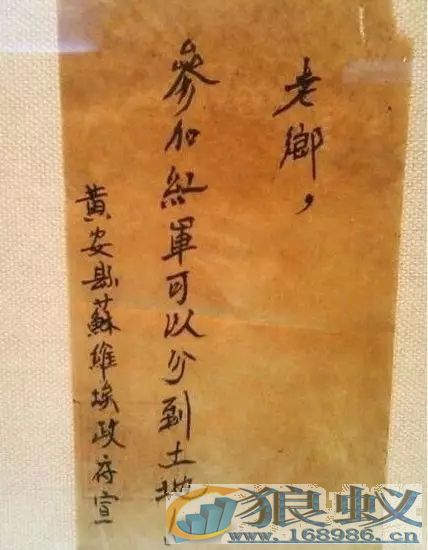 老鄉，
參加紅軍可以分到土地
黃安县蘇維埃政府宣
狼蚁
www.168986.cn